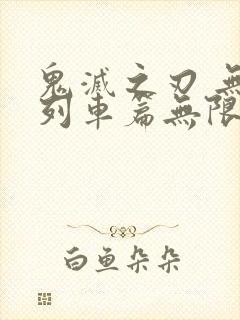 鬼滅之刃 無
列車篇無限
白鱼朵朵